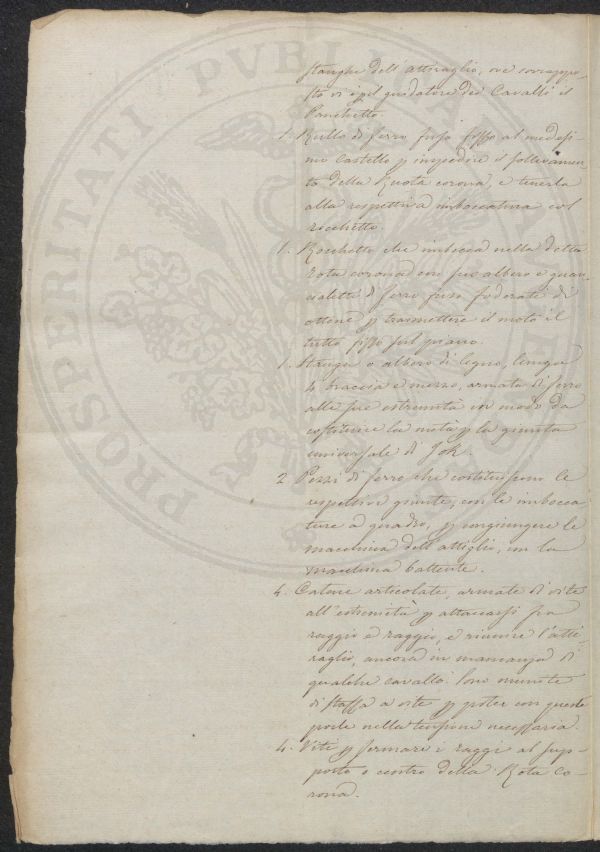 PROSPERITATI PVBLICAE
stanghe dell'attiraglio, ove sovrappo-
sto vi è pel guidatore dei Cavalli il
Panchetto.
1. Rullo di ferro fuso fisso al medesi-
mo Castello p impedire il sollevamen-
to della Ruota corona, e tenerla
alla respettiva imboccatura col
rocchetto.
1. Rocchetto che imbocca nella detta
rota corona con suo albero e guan-
cialetti di ferro fuso foderati di
ottone p trasmettere il moto il
tutto fisso sul piano.
1. Stanga o albero di legno, lunga
4 braccia e mezzo, armata di ferro
alle sue estremità in modo da
costituire la metà p la giunta
universale di Jok.
2 Pezzi di ferro che costituiscono le
respettive giunte, con le imbocca
ture a quadro, p congiungere le
macchina dell'attiglio, con la
macchina battente.
4. Catene articolate, armate di vite
all'estremità p attaccarsi fra
raggio e raggio, e riunire l'atti
raglio, ancora in mancanza di
qualche cavallo. Sono munite
di staffa a vite p poter con queste
porle nella tensione necessaria.
4. Viti p fermare i raggi al sup-
porto o centro della Rota Co-
rona.